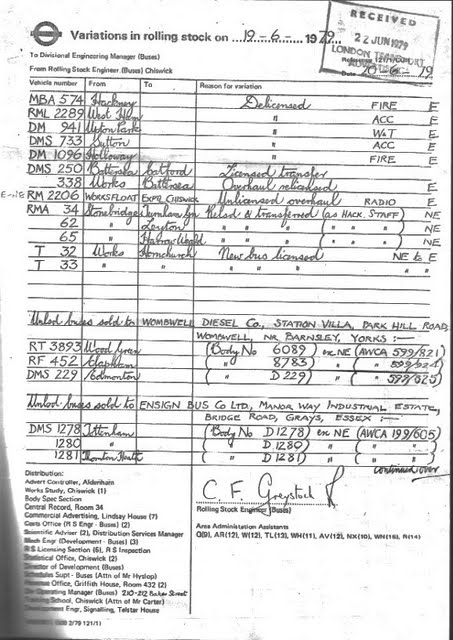 Variations in rolling stock on 19-6- 1979
RECEIVED
22 JUN 1979
LONDON TRANSPORT
Reference 121/1
Date 20-6-79
To Divisional Engineering Manager (Buses)
From Rolling Stock Engineer (Buses) Chiswick
Vehicle number From To Reason for variation
MBA 574 Hackney Delicensed FIRE E
RML 2289 West Ham " ACC E
DM 941 Upton Park " W&T E
DMS 733 Sutton " ACC E
DM 1096 Holloway " FIRE E
DMS 250 Battersea Catford Licensed transfer
338 Works Battersea Overhaul relicensed
E-NE RM 2206 WORKS FLOAT EXPTL CHISWICK Unlicensed overhaul RADIO E
RMA 34 Stonebridge Relsd & transferred (as HACK. STAFF) NE
62 " Leyton " " ( " " ) NE
65 " Harrow Weald " " ( " " ) NE
T 32 Works Hornchurch New bus licensed NE to E
T 33 " " " " " "
Unlsd buses sold to WOMBWELL DIESEL Co., STATION VILLA, PARK HILL ROAD,
WOMBWELL, NR. BARNSLEY, YORKS :—
RT 3893 Wood Green (Body No 6089) ex NE (AWCA 599/821)
RF 452 Clapham ( " 8783) " ( " 599/824)
DMS 229 Edmonton ( " D 229) " ( " 599/825)
Unlsd buses sold to ENSIGN BUS Co LTD, MANOR WAY INDUSTRIAL ESTATE,
BRIDGE ROAD, GRAYS, ESSEX :—
DMS 1278 Tottenham (Body No D1278) ex NE (AWCA 199/605)
1280 " ( " D1280) " ( " " )
1281 Thornton Heath ( " D1281) " ( " " )
continued over
Distribution:
Advert Controller, Aldenham
Works Study, Chiswick (1)
Body Spec Section
Central Record, Room 34
Commercial Advertising, Lindsay House (7)
Costs Office (R S Engr - Buses) (2)
Scientific Adviser (2), Distribution Services Manager
Mech Engr (Development - Buses) (3)
R S Licensing Section (5), R S Inspection
Statistical Office, Chiswick (2)
Director of Development (Buses)
Schedules Supt - Buses (Attn of Mr Hyslop)
Revenue Office, Griffith House, Room 432 (2)
Operating Manager (Buses) 210-212 Baker Street
Training School, Chiswick (Attn of Mr Carter)
Development Engr, Signalling, Telstar House
2/79 121/1)
C. F. Greystock
Rolling Stock Engineer (Buses)
Area Administration Assistants
Q(9), AR(12), W(12), TL(13), WH(11), AV(12), NX(10), WN(15), R(14)